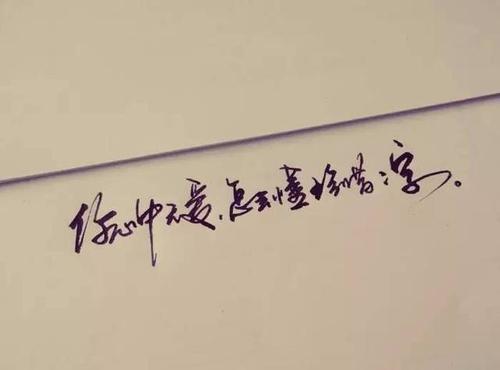 你心中无爱,怎会懂珍惜二字。